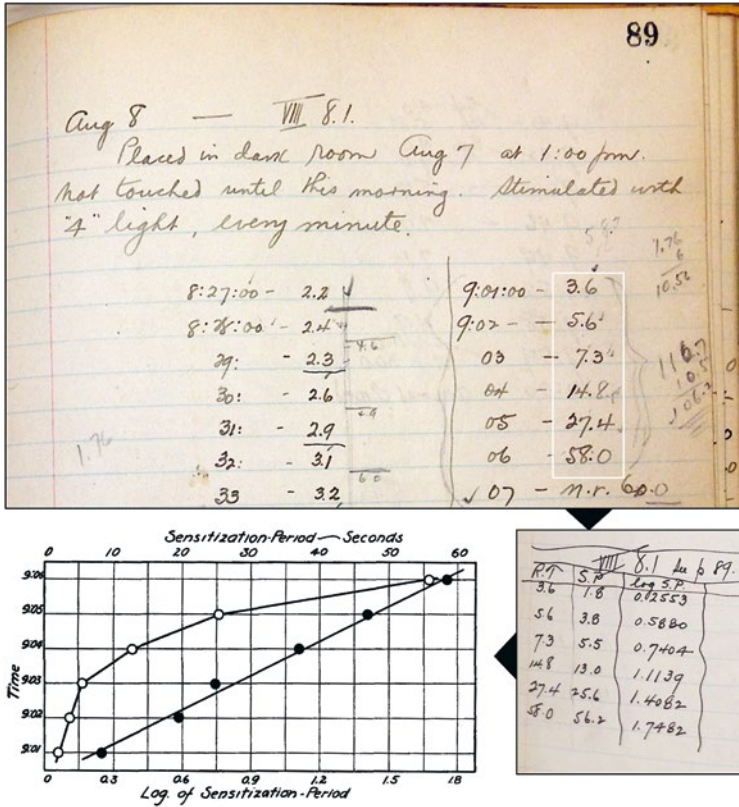 89
Aug 8 — VIII 8.1.
Placed in dark room Aug 7 at 1:00 pm.
not touched until this morning. Stimulated with
"4" light, every minute.
8:27:00 - 2.2
8:28:00 - 2.4
29: - 2.3
30: - 2.6
31: - 2.9
32: - 3.1
33 - 3.2
4.6
6.0
1.76
9:01:00 - 3.6
9:02 - - 5.6
03 - 7.3
04 - 14.8
05 - 27.4
06 - 58.0
07 - n.r. 60.0
1.76
6
10.56
116.7
10.5
106.2
Sensitization-Period — Seconds
0 10 20 30 40 50 60
Time
9:06
9:05
9:04
9:03
9:02
9:01
0 0.3 0.6 0.9 1.2 1.5 1.8
Log. of Sensitization-Period
VIII 8.1 see p 89.
R.T S.P log S.P.
3.6 1.8 0.02553
5.6 3.8 0.5880
7.3 5.5 0.7404
14.8 13.0 1.1139
27.4 25.6 1.4082
58.0 56.2 1.7482